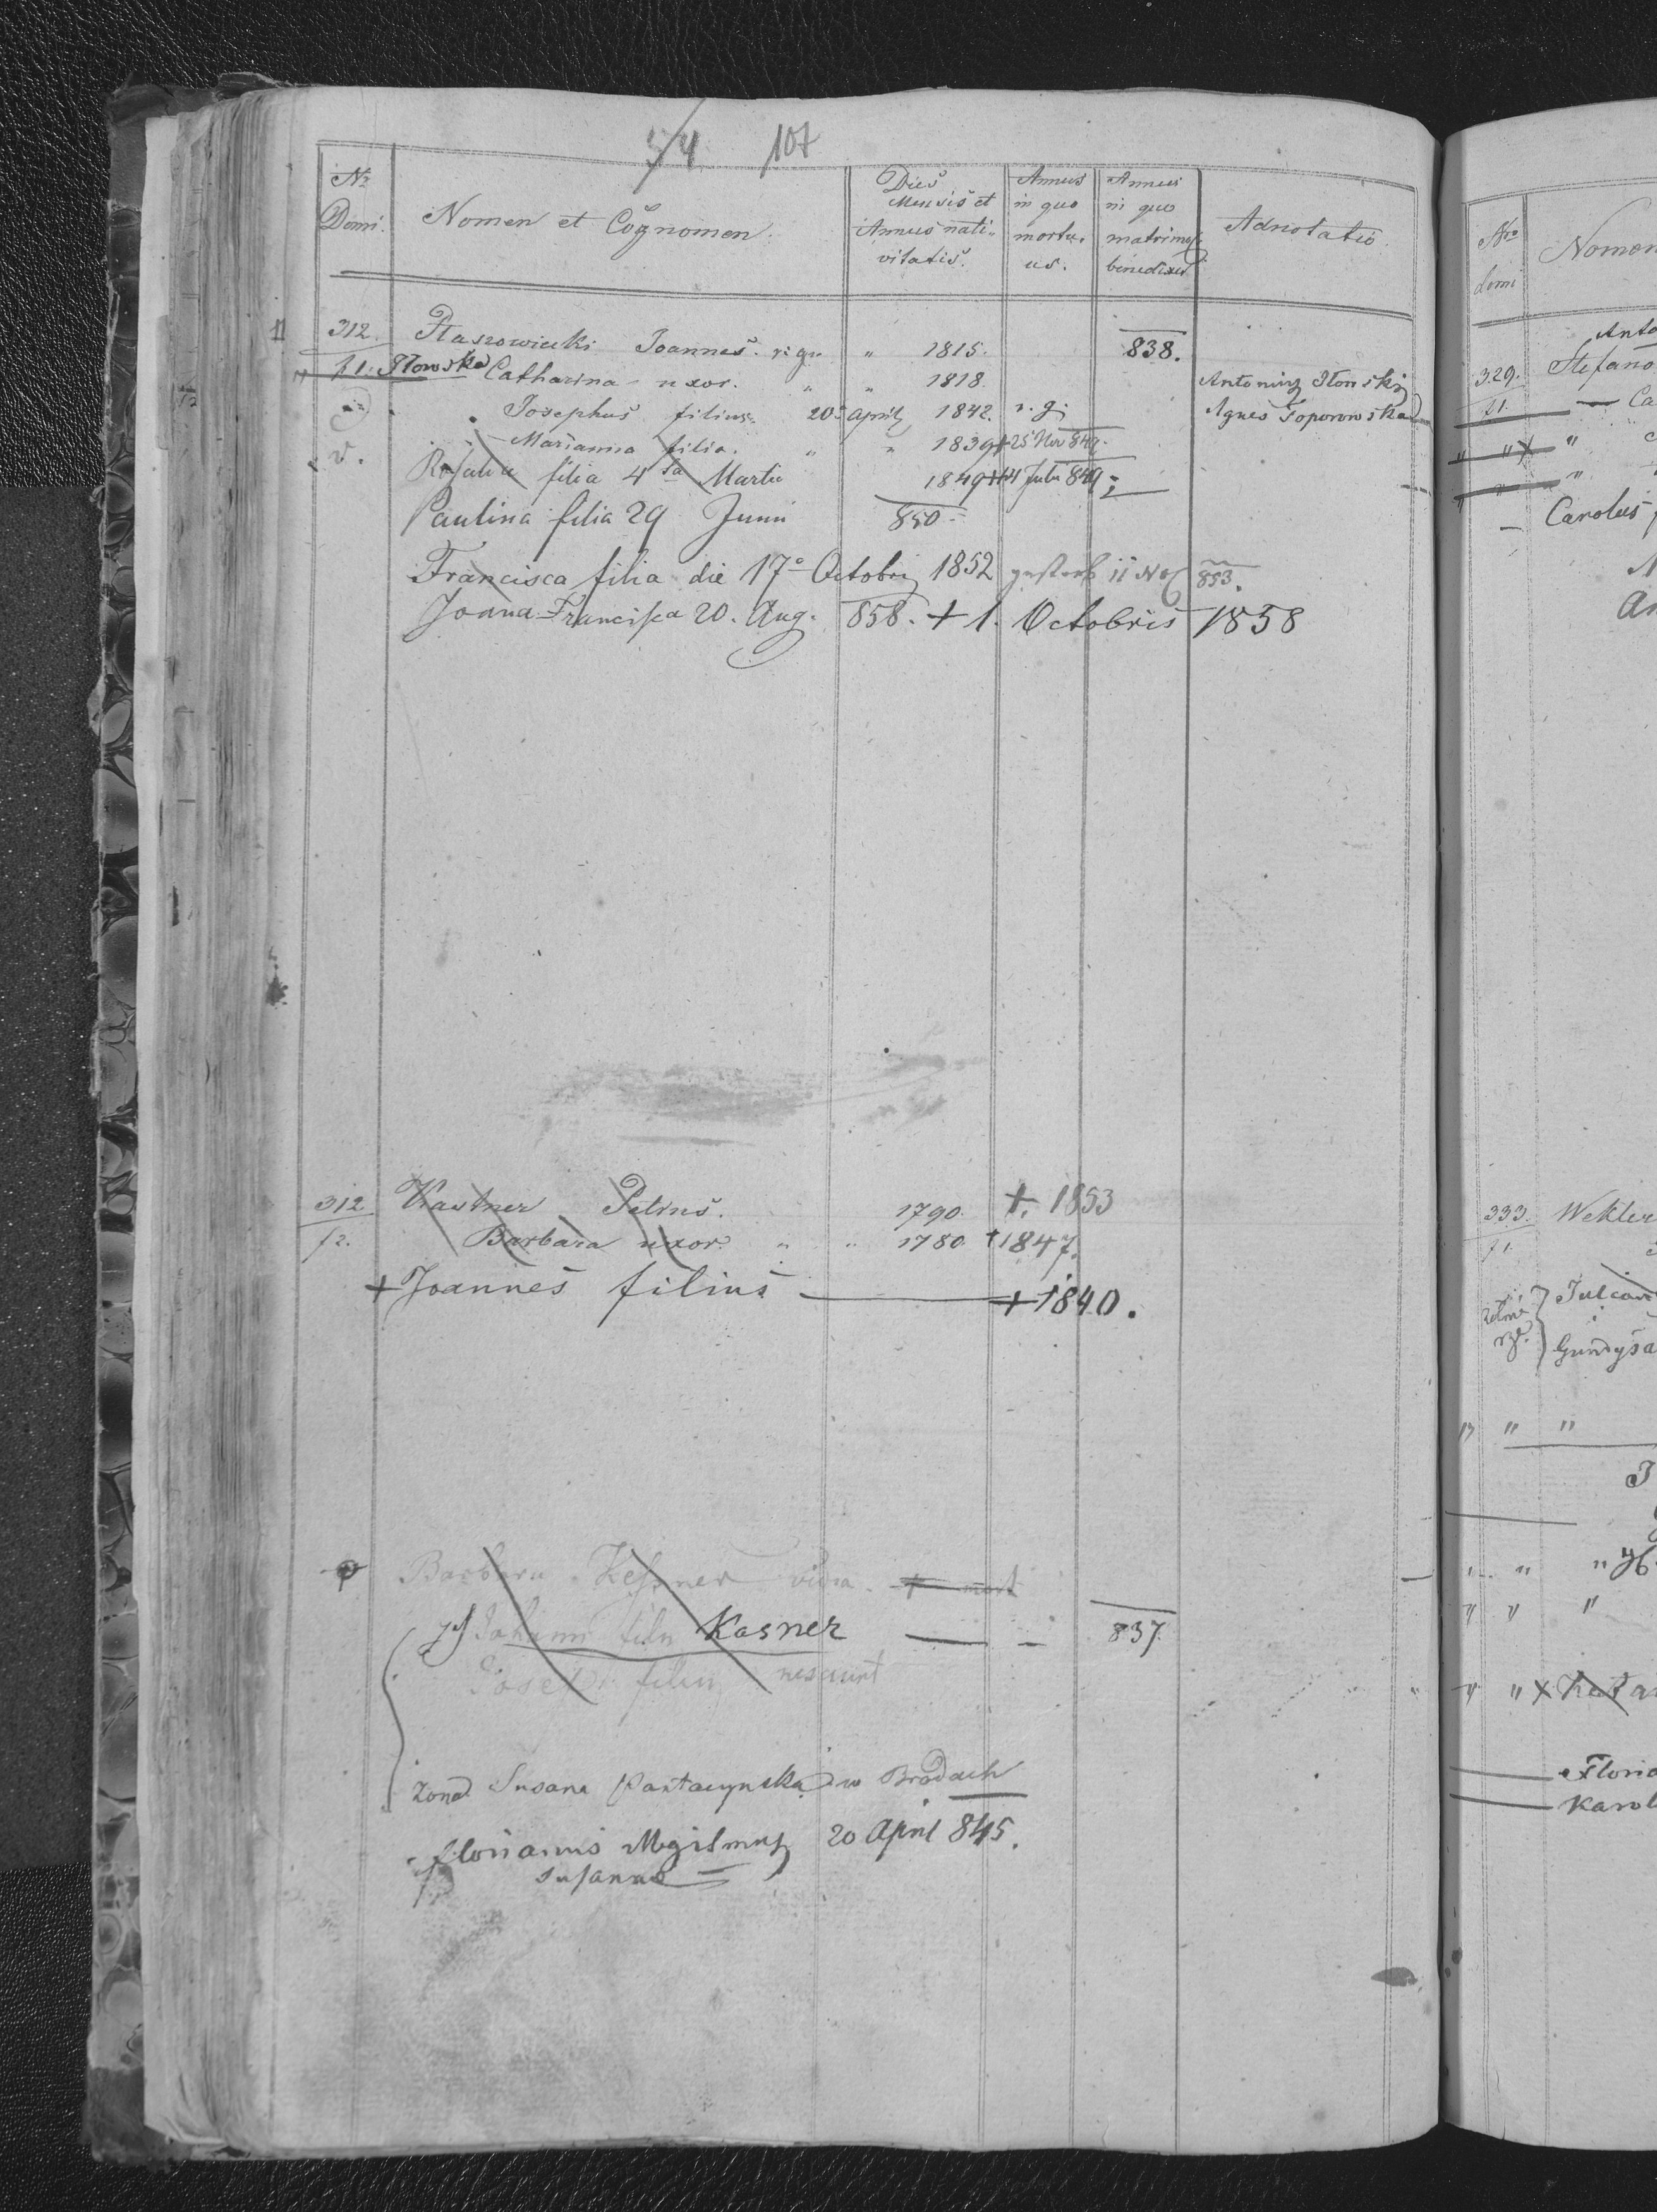 107
Nr Domi. Nomen et Cognomen. Dies Mensis et Annus nativitatis. Annus in quo mortuus. Annus in quo matrimo. benedixit Adnotatio.
312. Staszowiecki Joannes. r. gr. " 1815. 838.
f1. Iłowska Catharina - uxor. " " 1818. Antoniuz Iłowski
Josephus filius. 20 April 1842. r. g. Agnes Toporowska
v. Marianna filia. " " 1839 + 25 Nov 849.
Rosalia filia 4ta Martii 1849 + 14 Julii 849.
Paulina filia 29 Junii 850.
Francisca filia die 17o Octobris 1852 gestorb 11 853.
Joana Francisca 20. Aug. 858. + 1. Octobris 1858
312 Kastner Petrus. 1790. +. 1853
f2. Barbara uxor. " " 1780. + 1847.
+ Joannes filius + 1840.
Barbara Kessner vidua
Johann filu Kasner 837.
Joseph filiu nesciunt
żona Susana w Brodach
Florianus 20 April 845.
Susanna
Nro domi Nomen
Anto
329. Stefano
f1. Ca
Carolus
333. Wekler
f1.
Julian
"
Floria
Karol